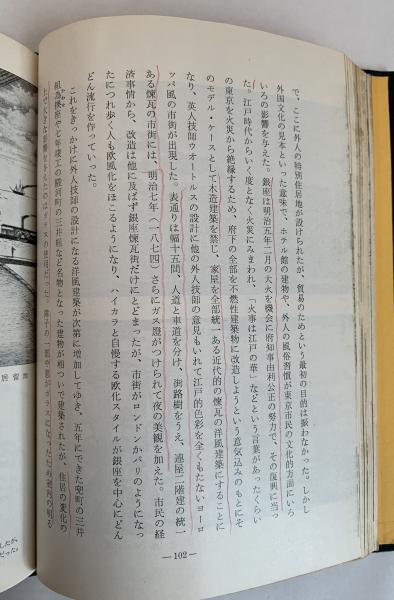 で、ここに外人の特別居留地が設けられたが、貿易のためという最初の目的は振わなかった。しかし
外国文化の見本といった意味で、ホテル館の建物や、外人の風俗習慣が東京市民の文化的方面にいろ
いろの影響を与えた。銀座は明治五年二月の大火を機会に府知事由利公正の努力で、その復興に当っ
た。江戸時代からいく度となく火災にみまわれ、「火事は江戸の華」などという言葉があったくらい
の東京を火災から絶縁するため、府下の全部を不燃性建築物に改造しようという意気込みのもとにそ
のモデル・ケースとして木造建築を禁じ、家屋を全部統一ある近代的の煉瓦の洋風建築にすることに
なり、英人技師ウオートルスの設計に他の外人技師の意見もいれて江戸的色彩を全くもたないヨーロ
ッパ風の市街が出現した。表通りは幅十五間、人道と車道を分け、街路樹をうえ、連屋二階建の統一
ある煉瓦の市街には、明治七年(一八七四)さらにガス燈がつけられて夜の美観を加えた。市民の経
済事情から、改造は他に及ばず銀座煉瓦街だけにとどまったが、市街がロンドンかパリのようになっ
たにつれ歩く人も欧風化をほこるようになり、ハイカラと自慢する欧化スタイルが銀座を中心にどん
どん流行を作っていった。
これをきっかけに外人技師の設計になる洋風建築が次第に増加してゆき、五年にできた兜町の三井
組為換座や七年竣工の駿河町の三井組など名物となった建物が相ついで建築されたが、住居の変化の
上で大きな影響を与えたのはガラスの使用だった。障子の一部や窓がガラスになったため室内の明る
— 102 —